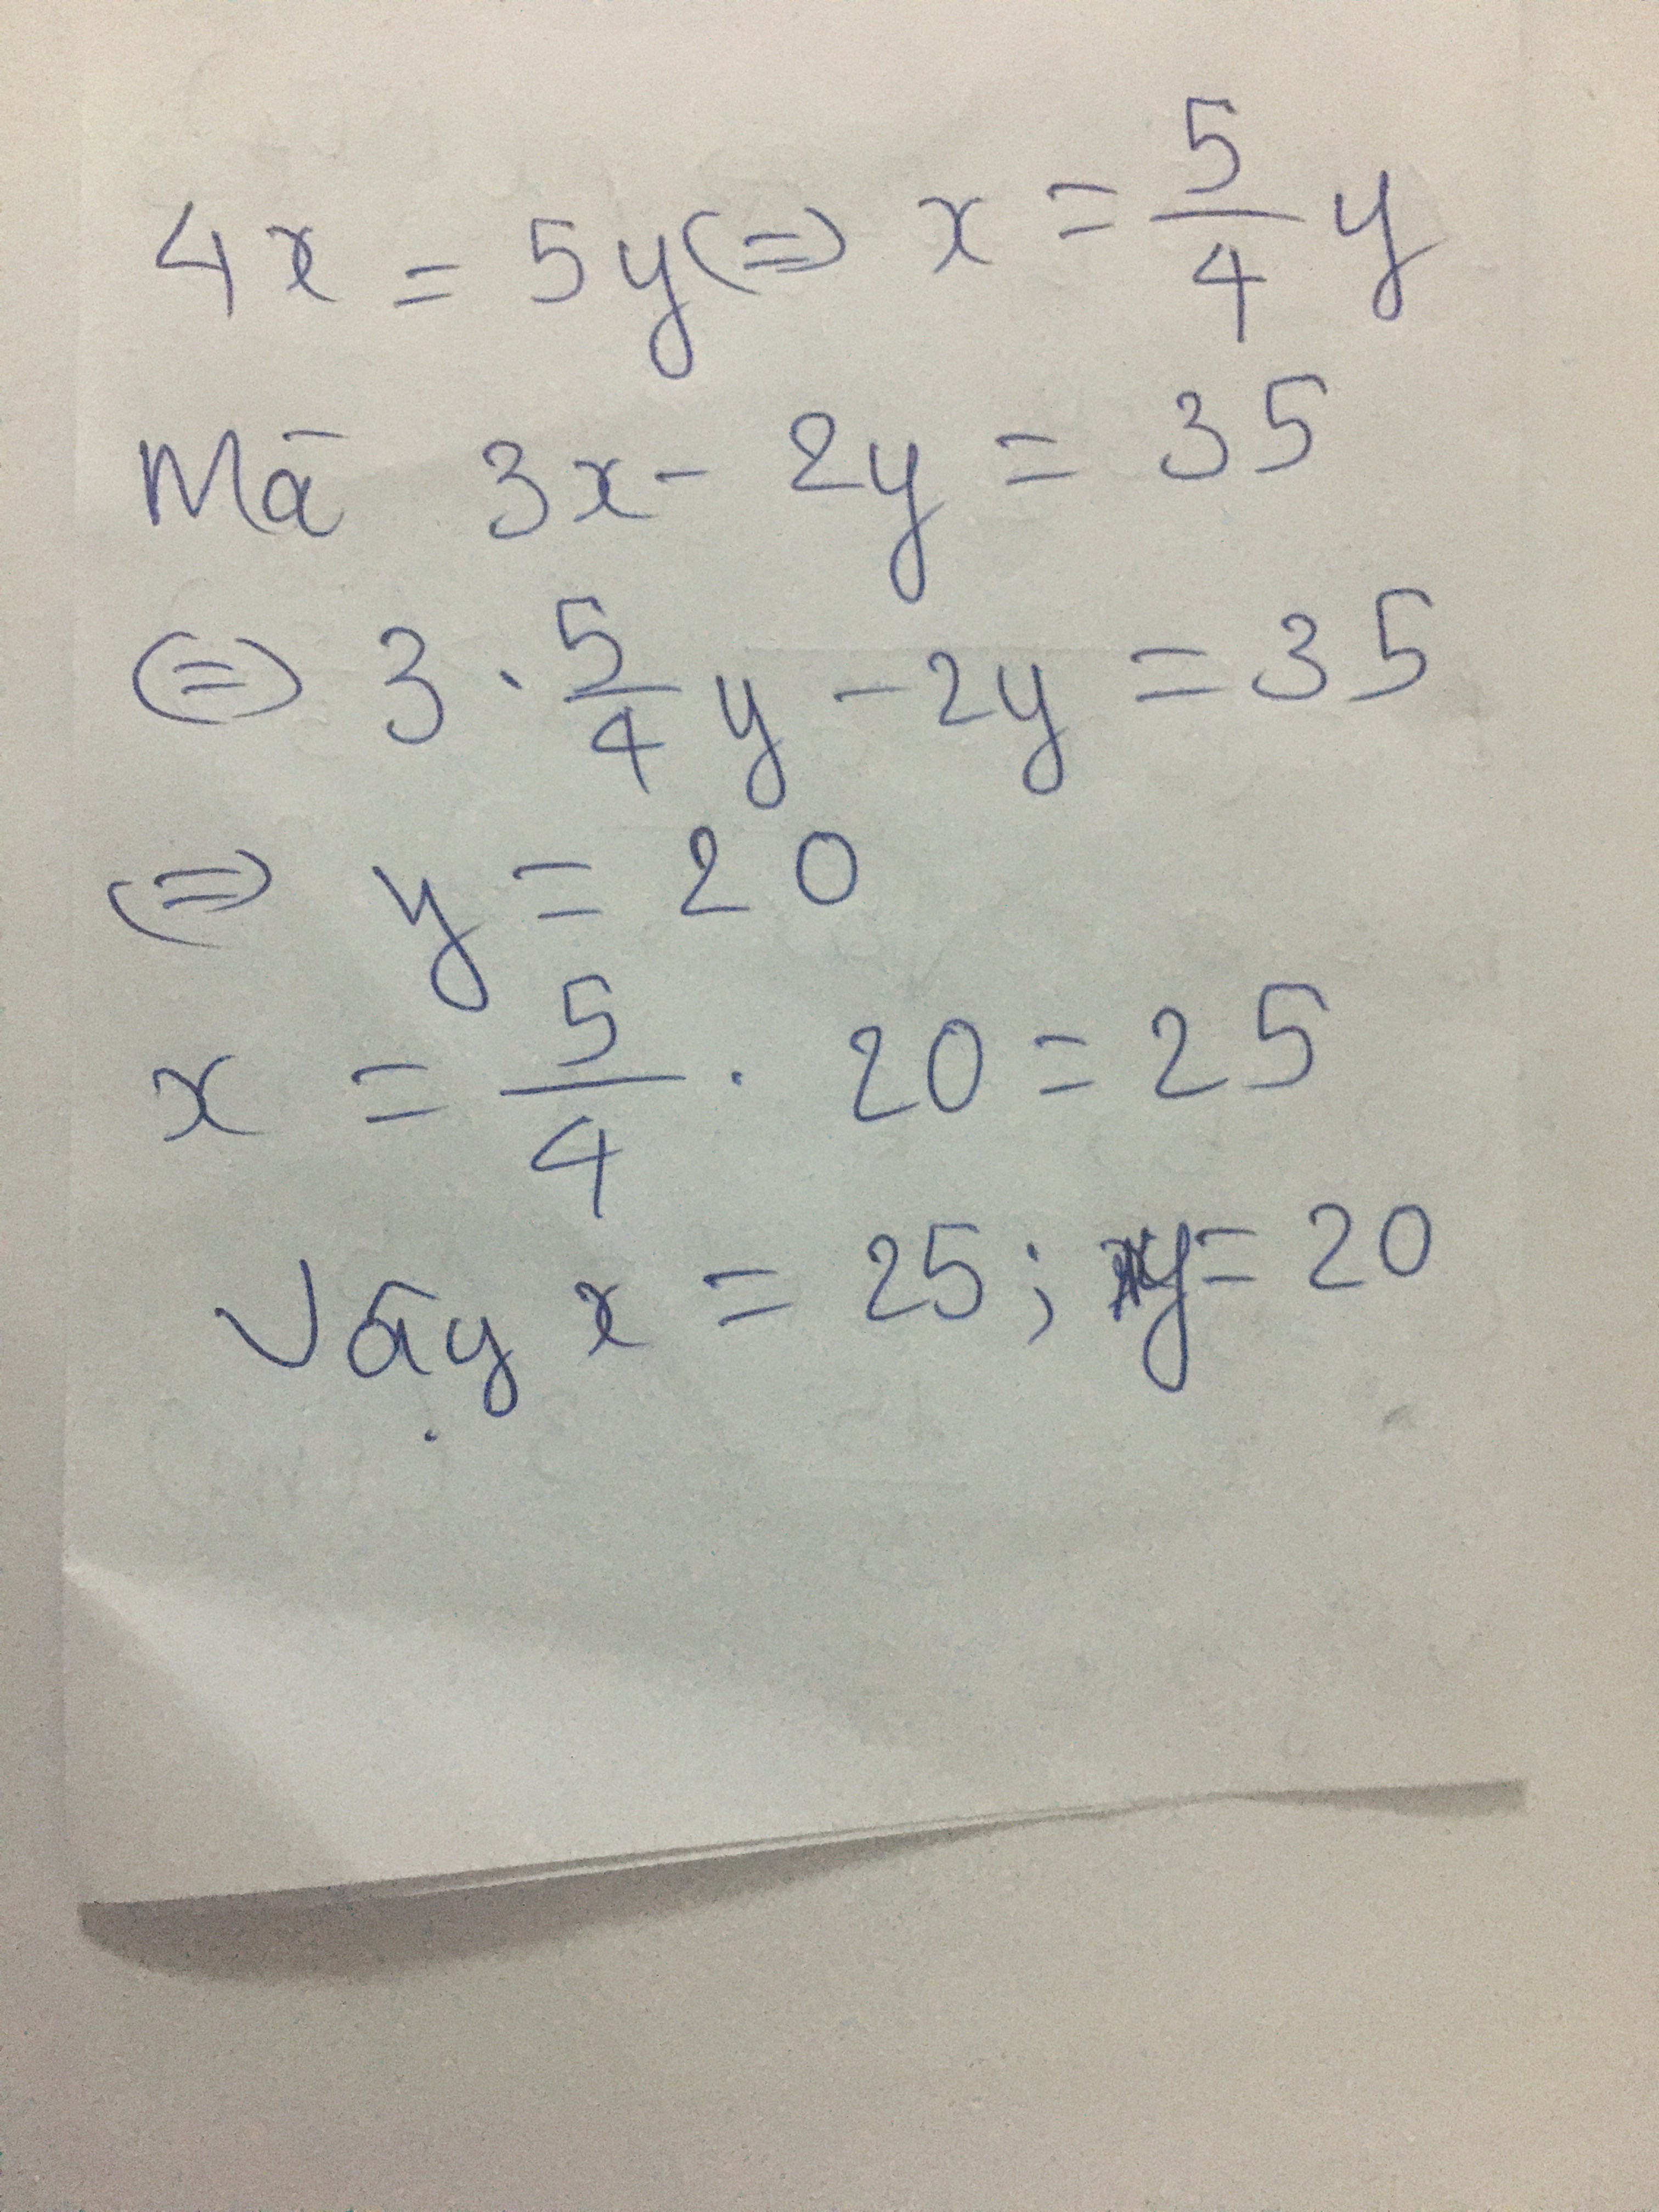 4x = 5y <=> x = 5/4 y
Mà 3x - 2y = 35
<=> 3 . 5/4 y - 2y = 35
<=> y = 20
x = 5/4 . 20 = 25
Vậy x = 25 ; y = 20